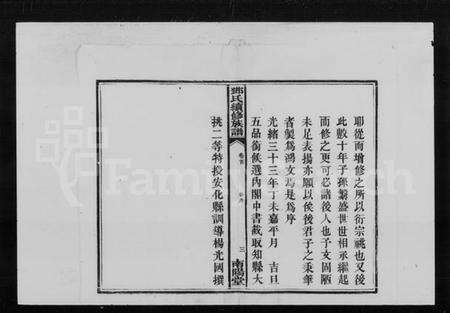 耶從而增修之所以衍宗祧也又後
此數十年子孫繁盛世世相承繼起
而修之更可必諸後人也予文固陋
未足表揚亦願以俟後君子之秉筆
者製為鴻文焉是為序
光緒三十三年丁未嘉平月 吉旦
五品銜候選內閣中書截取知縣大
挑二等特授安化縣訓導楊光國撰
鄧氏續修族譜
卷首
三
南陽堂
FamilySearch